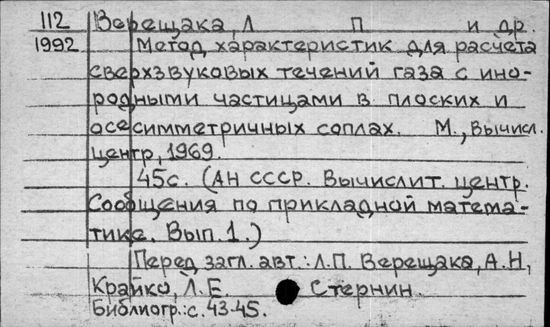 112 Верещака, Л П и др.
1992 Метод характеристик для расчета
сверхзвуковых течений газа с ино-
родными частицами в плоских и
осесимметричных соплах. М., Вычисл.
центр, 1969.
45с. (АН СССР. Вычислит. центр.
Сообщения по прикладной матема-
тике. Вып. 1.)
Перед загл. авт.: Л.П. Верещака, А.Н,
Крайко, Л.Е. Стернин.
Библиогр.: с. 43-45.